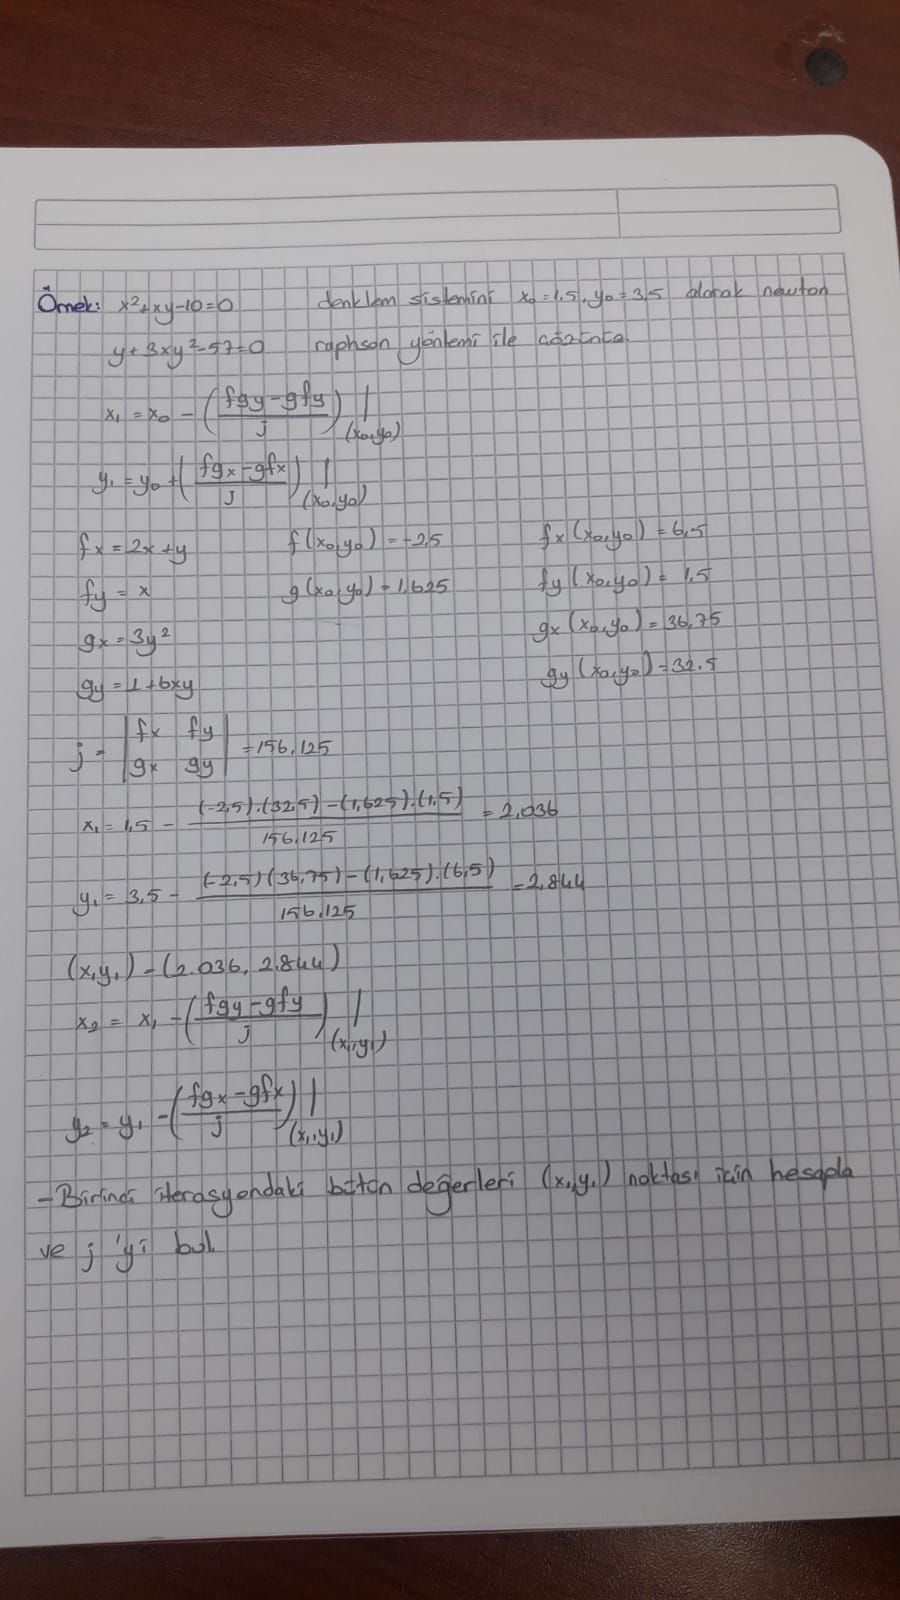 Örnek: x²+xy-10=0 denklem sistemini x₀=1,5, y₀=3,5 alarak newton
y+3xy²-57=0 raphson yöntemi ile çözünüz.
x₁ = x₀ - (fgy-gfy / j) | (x₀,y₀)
y₁ = y₀ + (fgx-gfx / j) | (x₀,y₀)
fx = 2x+y f(x₀,y₀) = -2,5 fx(x₀,y₀) = 6,5
fy = x g(x₀,y₀) = 1,625 fy(x₀,y₀) = 1,5
gx = 3y² gx(x₀,y₀) = 36,75
gy = 1+6xy gy(x₀,y₀) = 32,5
j = |fx fy
gx gy| = 156,125
x₁ = 1,5 - (-2,5).(32,5) - (1,625).(1,5) / 156,125 = 2,036
y₁ = 3,5 - (-2,5)(36,75) - (1,625).(6,5) / 156,125 = 2,844
(x,y₁) = (2.036, 2.844)
x₂ = x₁ - (fgy-gfy / j) | (x₁,y₁)
y₂ = y₁ - (fgx-gfx / j) | (x₁,y₁)
- Birinci iterasyondaki bütün değerleri (x₁,y₁) noktası için hesapla
ve j 'yi bul.